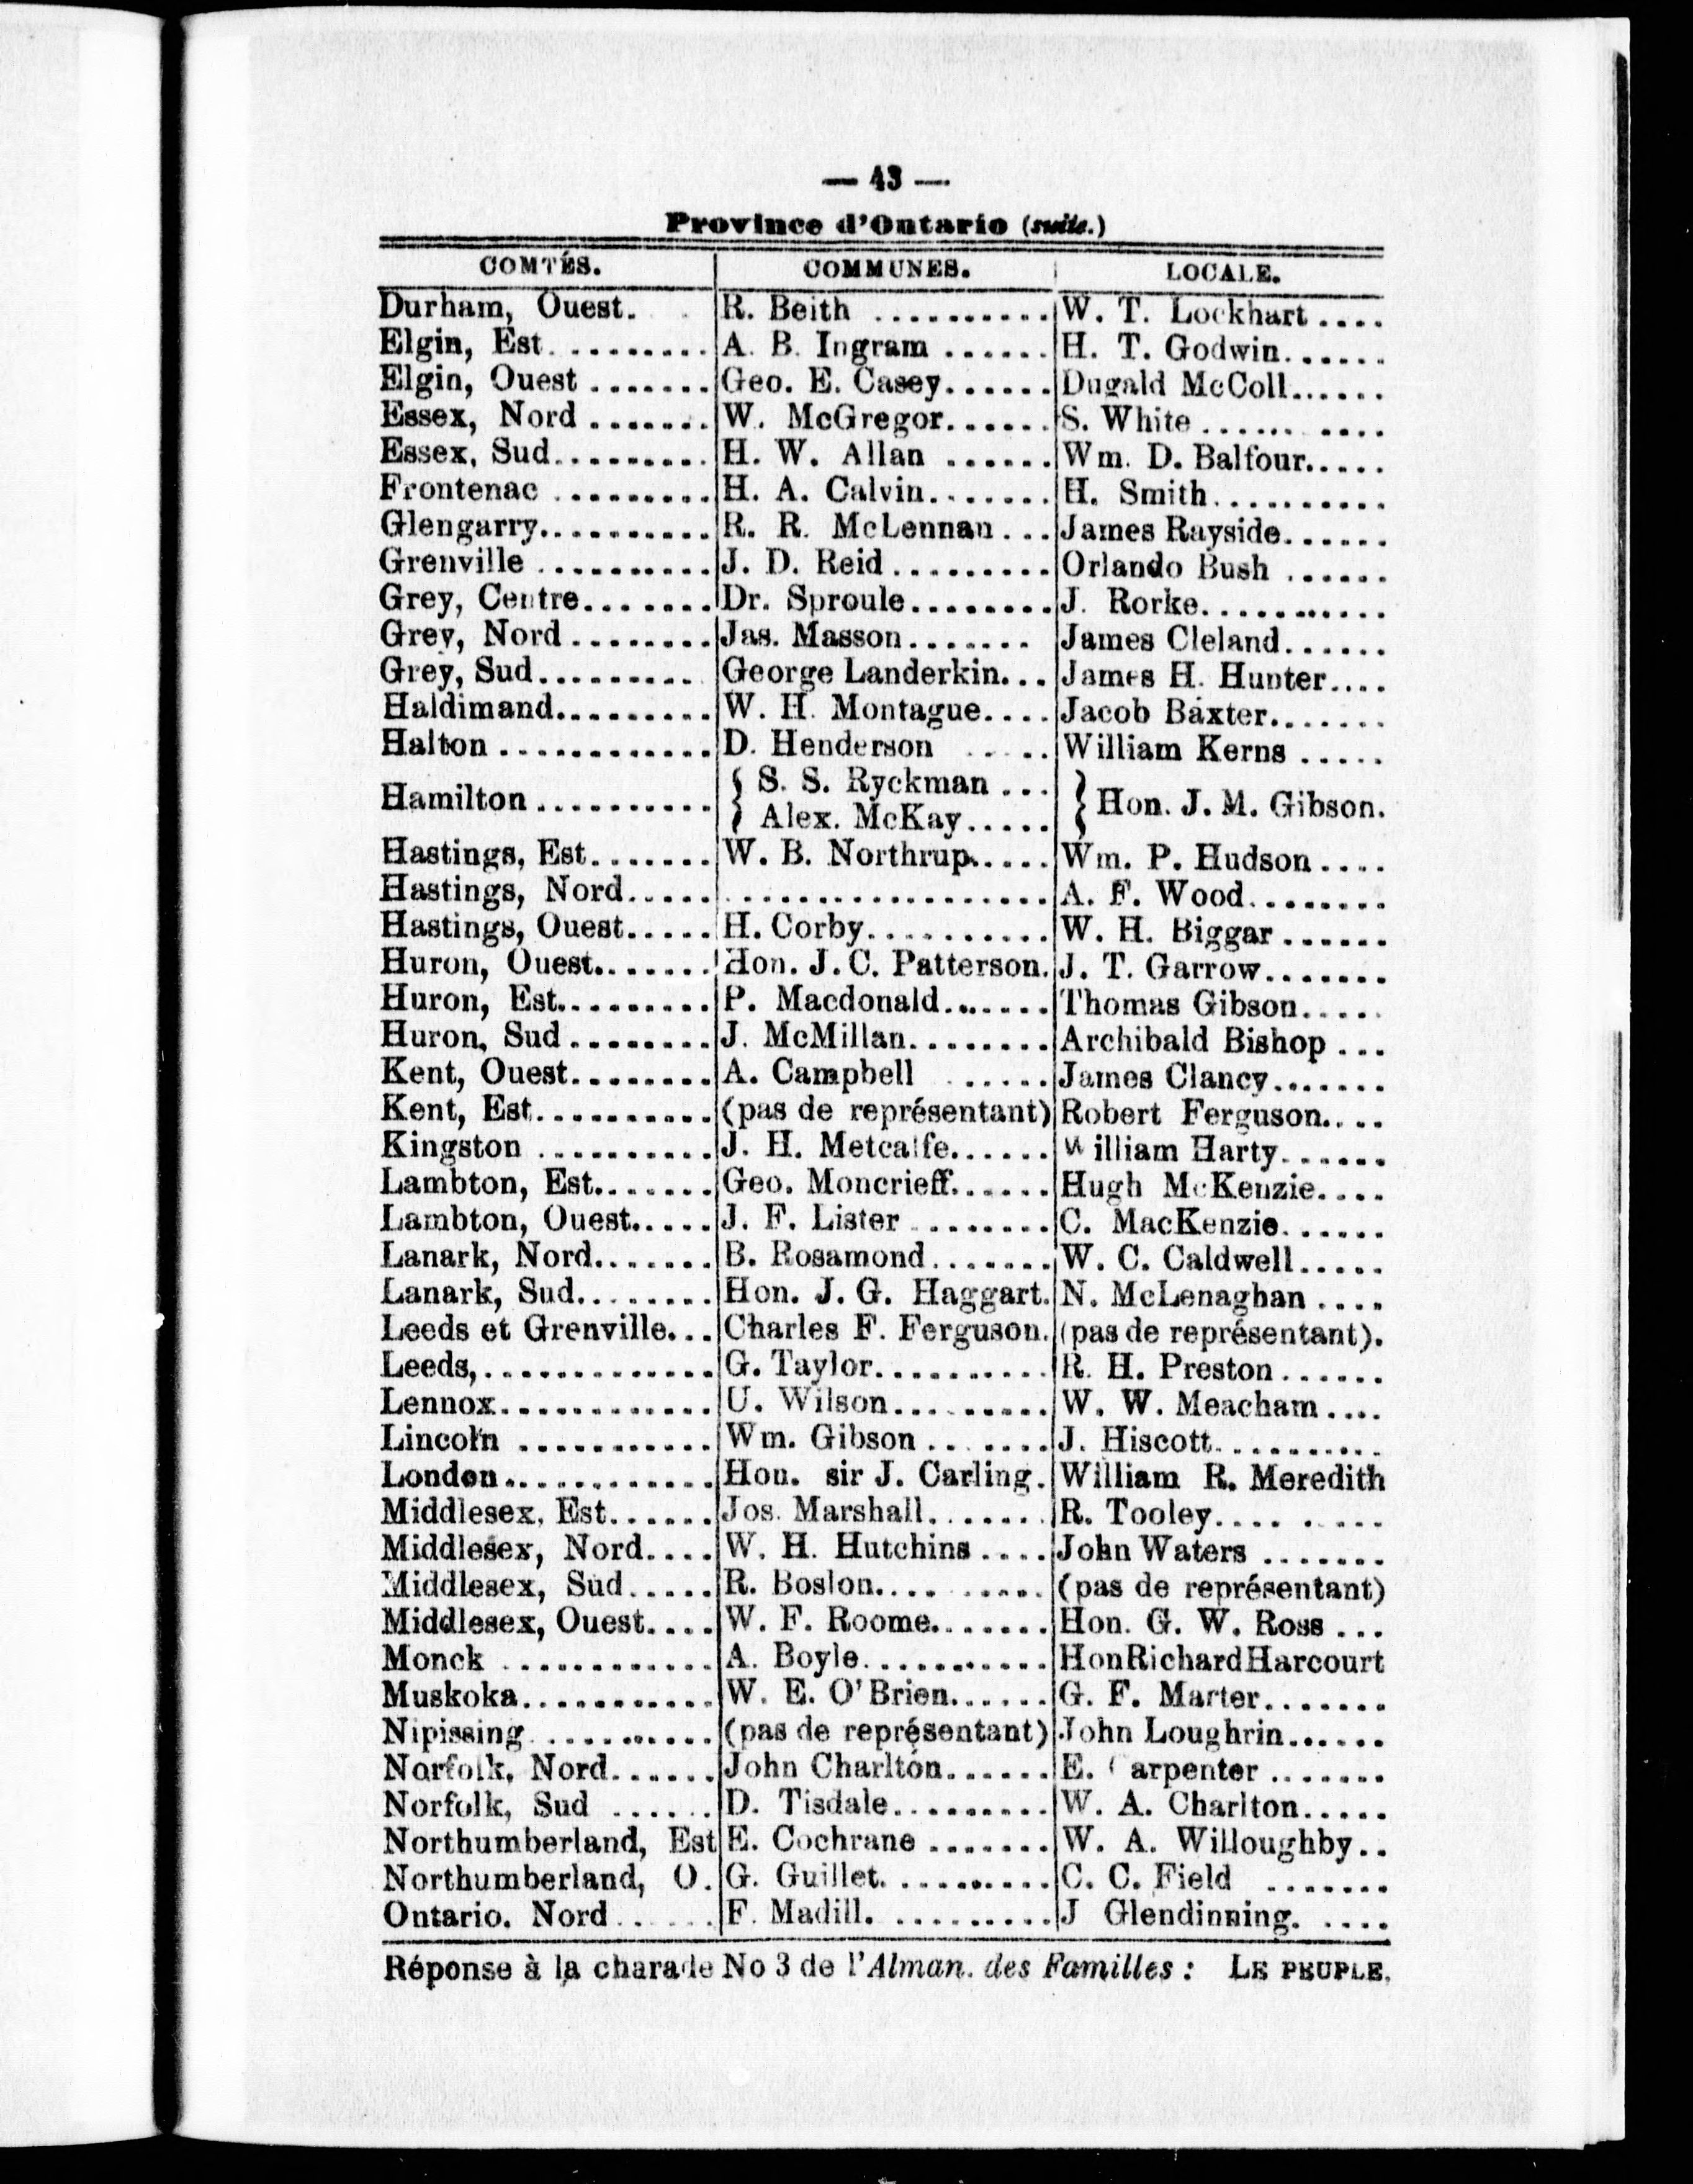 — 43 —
Province d'Ontario (suite.)
COMTÉS. COMMUNES. LOCALE.
Durham, Ouest. R. Beith .......... W. T. Lockhart ....
Elgin, Est. ........ A. B. Ingram ...... H. T. Godwin......
Elgin, Ouest ....... Geo. E. Casey...... Dugald McColl......
Essex, Nord ....... W. McGregor...... S. White ...... ....
Essex, Sud.......... H. W. Allan ...... Wm. D. Balfour.....
Frontenac ......... H. A. Calvin....... H. Smith..........
Glengarry.......... R. R. McLennan ... James Rayside......
Grenville .......... J. D. Reid ......... Orlando Bush ......
Grey, Centre....... Dr. Sproule........ J. Rorke...........
Grey, Nord ........ Jas. Masson....... James Cleland......
Grey, Sud.......... George Landerkin... James H. Hunter....
Haldimand......... W. H. Montague.... Jacob Baxter.......
Halton ............ D. Henderson ..... William Kerns .....
Hamilton .......... { S. S. Ryckman ... } Hon. J. M. Gibson.
Alex. McKay.....
Hastings, Est....... W. B. Northrup..... Wm. P. Hudson ....
Hastings, Nord..... .................. A. F. Wood........
Hastings, Ouest..... H. Corby.......... W. H. Biggar ......
Huron, Ouest....... Hon. J. C. Patterson. J. T. Garrow.......
Huron, Est......... P. Macdonald....... Thomas Gibson.....
Huron, Sud ........ J. McMillan........ Archibald Bishop ...
Kent, Ouest........ A. Campbell ...... James Clancy.......
Kent, Est.......... (pas de représentant) Robert Ferguson....
Kingston .......... J. H. Metcalfe...... William Harty......
Lambton, Est....... Geo. Moncrieff...... Hugh McKenzie....
Lambton, Ouest..... J. F. Lister ........ C. MacKenzie......
Lanark, Nord....... B. Rosamond....... W. C. Caldwell.....
Lanark, Sud........ Hon. J. G. Haggart. N. McLenaghan ....
Leeds et Grenville... Charles F. Ferguson. (pas de représentant).
Leeds,............. G. Taylor.......... R. H. Preston ......
Lennox............ U. Wilson......... W. W. Meacham ....
Lincoln ........... Wm. Gibson ....... J. Hiscott..........
London............ Hon. sir J. Carling. William R. Meredith
Middlesex, Est...... Jos. Marshall....... R. Tooley.... .....
Middlesex, Nord.... W. H. Hutchins .... John Waters .......
Middlesex, Sud..... R. Boslon.... ..... (pas de représentant)
Middlesex, Ouest.... W. F. Roome....... Hon. G. W. Ross ...
Monck ............ A. Boyle........... HonRichardHarcourt
Muskoka........... W. E. O'Brien...... G. F. Marter.......
Nipissing.......... (pas de représentant) John Loughrin......
Norfolk, Nord...... John Charlton...... E. Carpenter .......
Norfolk, Sud ...... D. Tisdale......... W. A. Charlton.....
Northumberland, Est E. Cochrane ....... W. A. Willoughby..
Northumberland, O. G. Guillet. ......... C. C. Field .......
Ontario. Nord...... F. Madill. ......... J Glendinning. ....
Réponse à la charade No 3 de l'Alman. des Familles : LE PEUPLE.